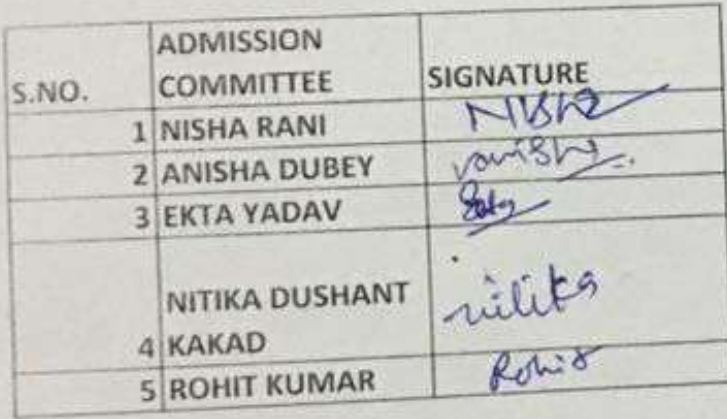 ADMISSION
S.NO. COMMITTEE SIGNATURE
1 NISHA RANI Nisha
2 ANISHA DUBEY
3 EKTA YADAV Ekta
NITIKA DUSHANT nitika
4 KAKAD
5 ROHIT KUMAR Rohit